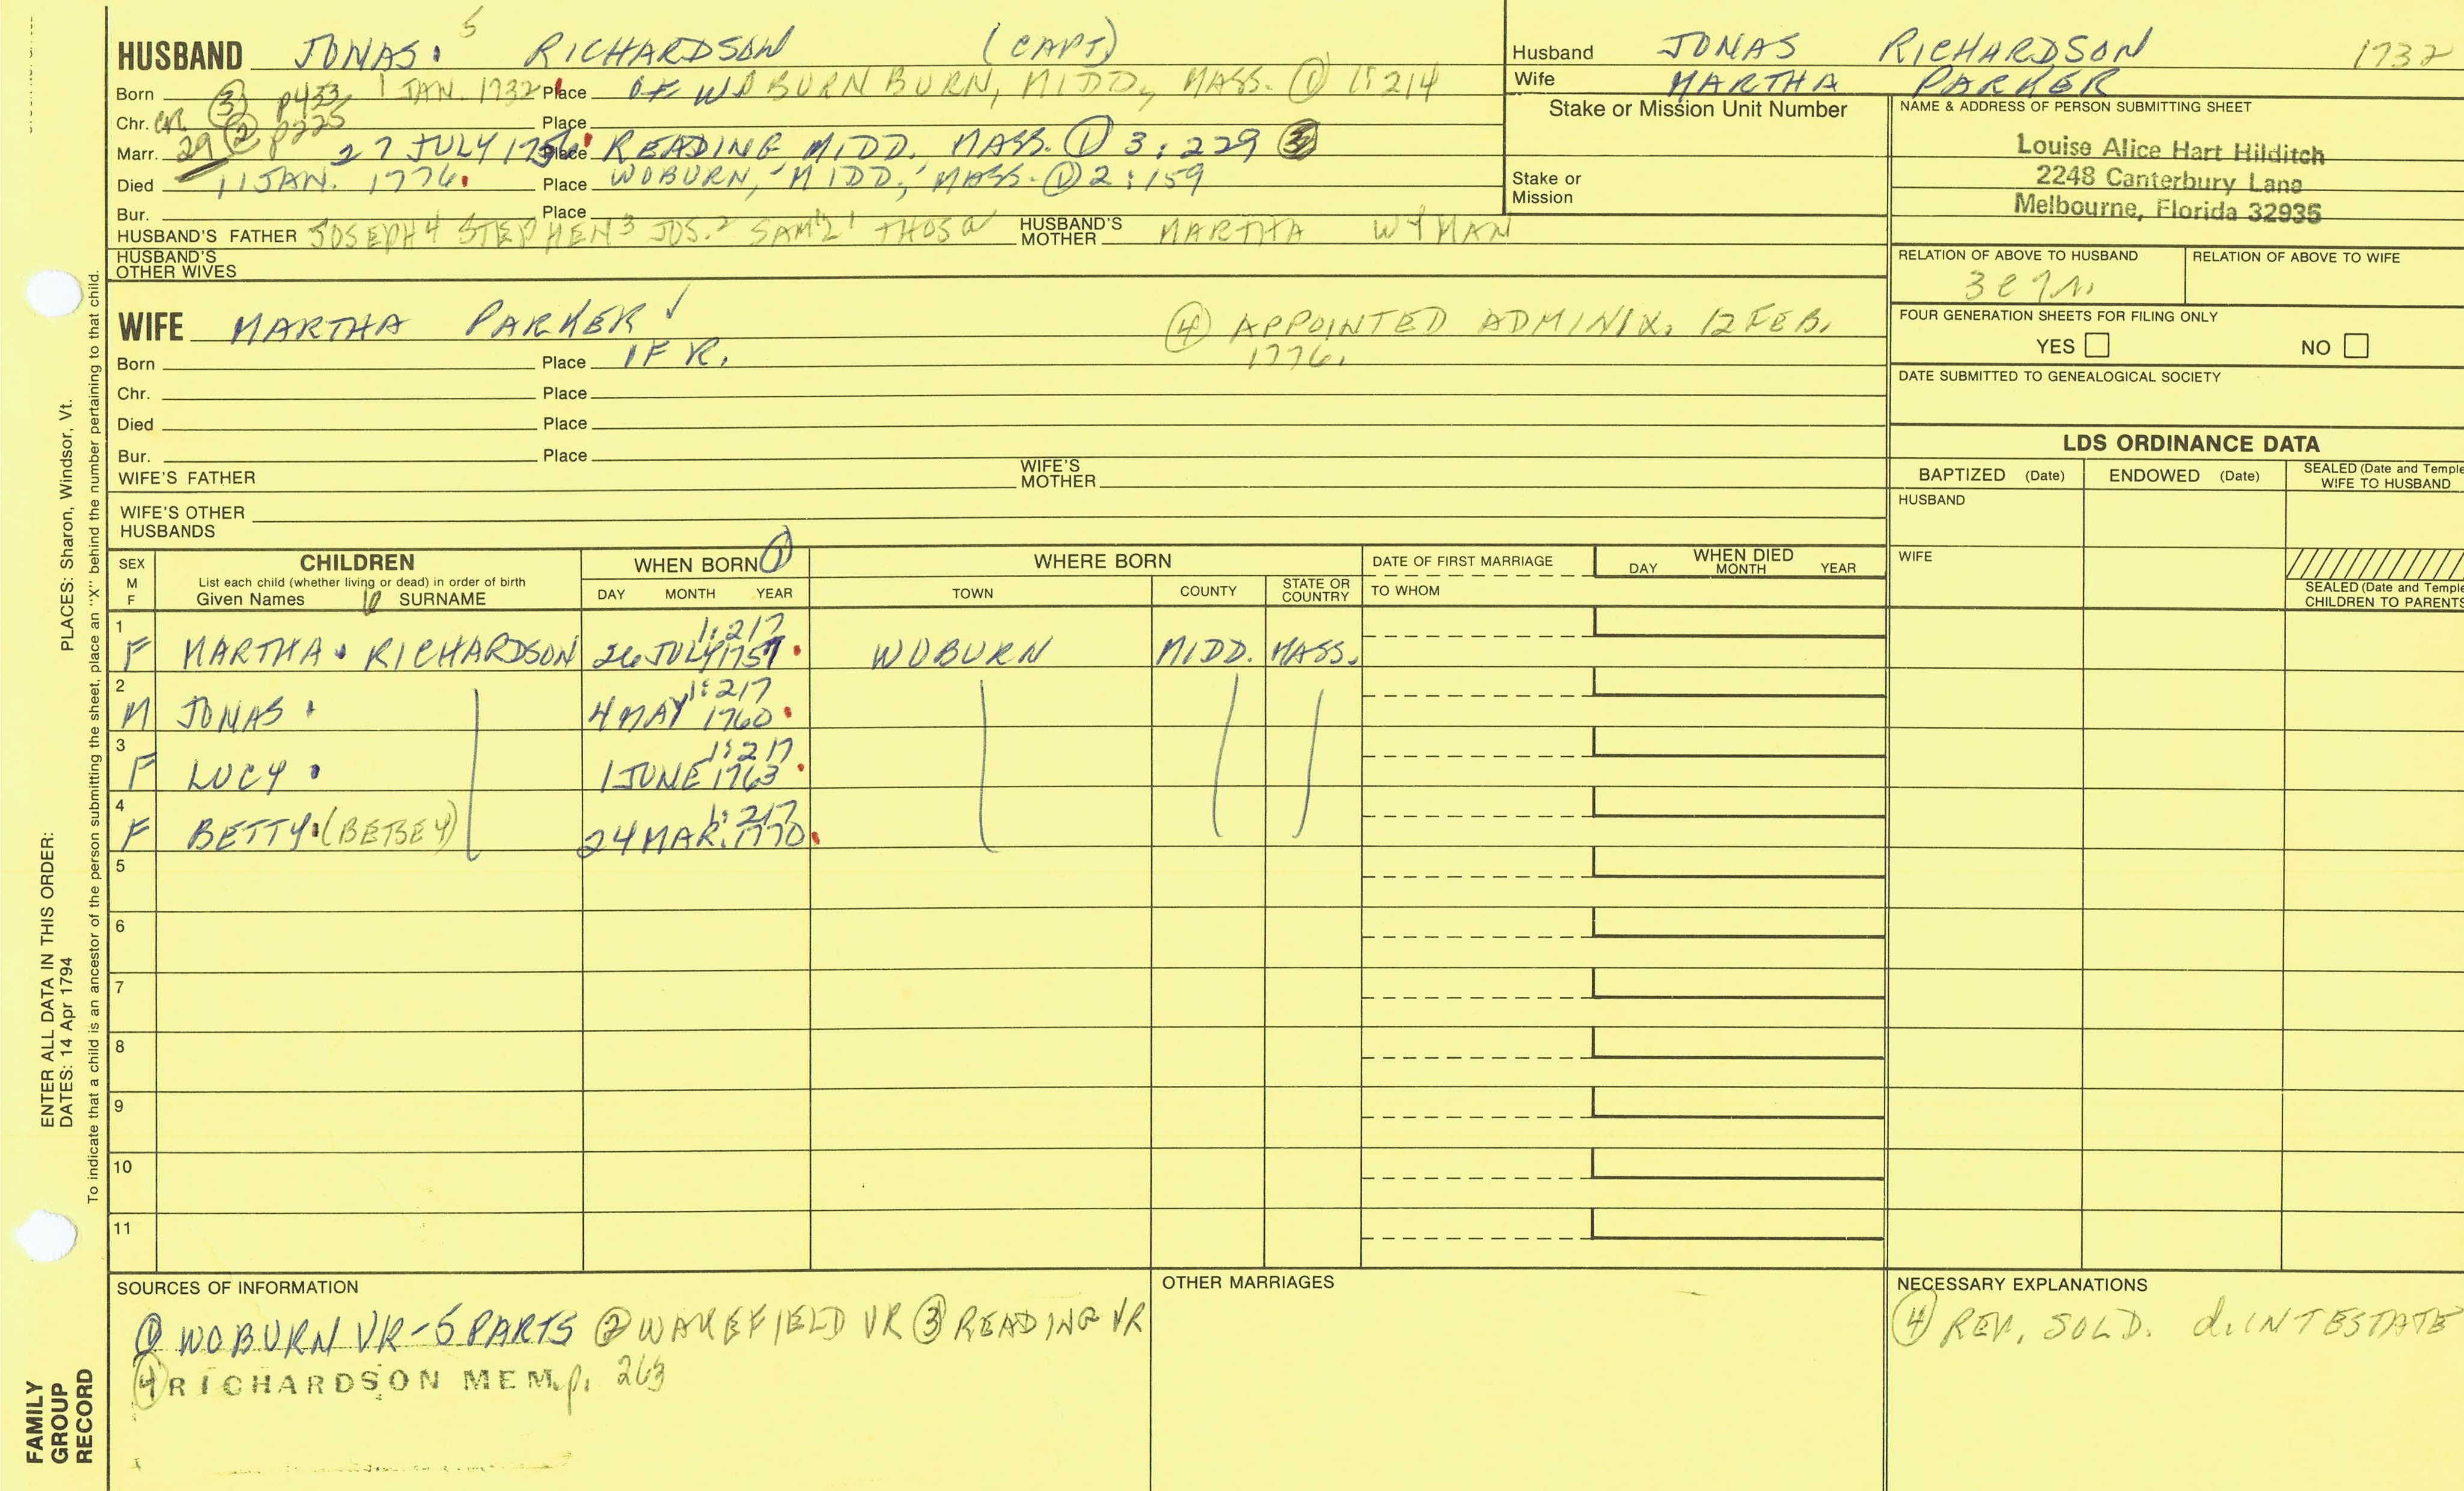 5
HUSBAND JONAS. RICHARDSON (CAPT)
Born 1 JAN. 1732 Place OF WOBURN BURN, MIDD., MASS. ① 1:214
③ p433
Chr. Place
② p225
Marr. 29 27 JULY 1756 Place READING MIDD. MASS. ① 3:229 ③
Died 11 JAN. 1776. Place WOBURN, MIDD., MASS. ① 2:159
Bur. Place
HUSBAND'S FATHER JOSEPH4 STEPHEN3 JOS.2 SAM'L1 THOSa HUSBAND'S MOTHER MARTHA WYMAN
HUSBAND'S OTHER WIVES
Husband JONAS RICHARDSON 1732
Wife MARTHA PARKER
Stake or Mission Unit Number
Stake or Mission
NAME & ADDRESS OF PERSON SUBMITTING SHEET
Louise Alice Hart Hilditch
2248 Canterbury Lane
Melbourne, Florida 32935
RELATION OF ABOVE TO HUSBAND RELATION OF ABOVE TO WIFE
WIFE MARTHA PARKER ✓ ④ APPOINTED ADMINIX. 12 FEB.
1776.
Born Place OF R.
Chr. Place
Died Place
Bur. Place
WIFE'S FATHER WIFE'S MOTHER
WIFE'S OTHER HUSBANDS
FOUR GENERATION SHEETS FOR FILING ONLY
YES NO
DATE SUBMITTED TO GENEALOGICAL SOCIETY
LDS ORDINANCE DATA
BAPTIZED (Date) ENDOWED (Date) SEALED (Date and Temple
WIFE TO HUSBAND
HUSBAND
WIFE
SEALED (Date and Temple
CHILDREN TO PARENTS
SEX M F CHILDREN WHEN BORN ① WHERE BORN DATE OF FIRST MARRIAGE WHEN DIED
List each child (whether living or dead) in order of birth
Given Names SURNAME DAY MONTH YEAR TOWN COUNTY STATE OR COUNTRY TO WHOM DAY MONTH YEAR
1:217
1 F MARTHA. RICHARDSON 26 JULY 1757. WOBURN MIDD. MASS.
1:217
2 M JONAS. 4 MAY 1760.
1:217
3 F LUCY. 1 JUNE 1763.
1:217
4 F BETTY. (BETSEY) 24 MAR. 1770.
5
6
7
8
9
10
11
SOURCES OF INFORMATION
① WOBURN VR-5 PARTS ② WAKEFIELD VR ③ READING VR
④ RICHARDSON MEM. p. 263
OTHER MARRIAGES
NECESSARY EXPLANATIONS
④ REV. SOLD. d. INTESTATE
PLACES: Sharon, Windsor, Vt.
ENTER ALL DATA IN THIS ORDER:
DATES: 14 Apr 1794
To indicate that a child is an ancestor of the person submitting the sheet, place an "X" behind the number pertaining to that child.
FAMILY
GROUP
RECORD